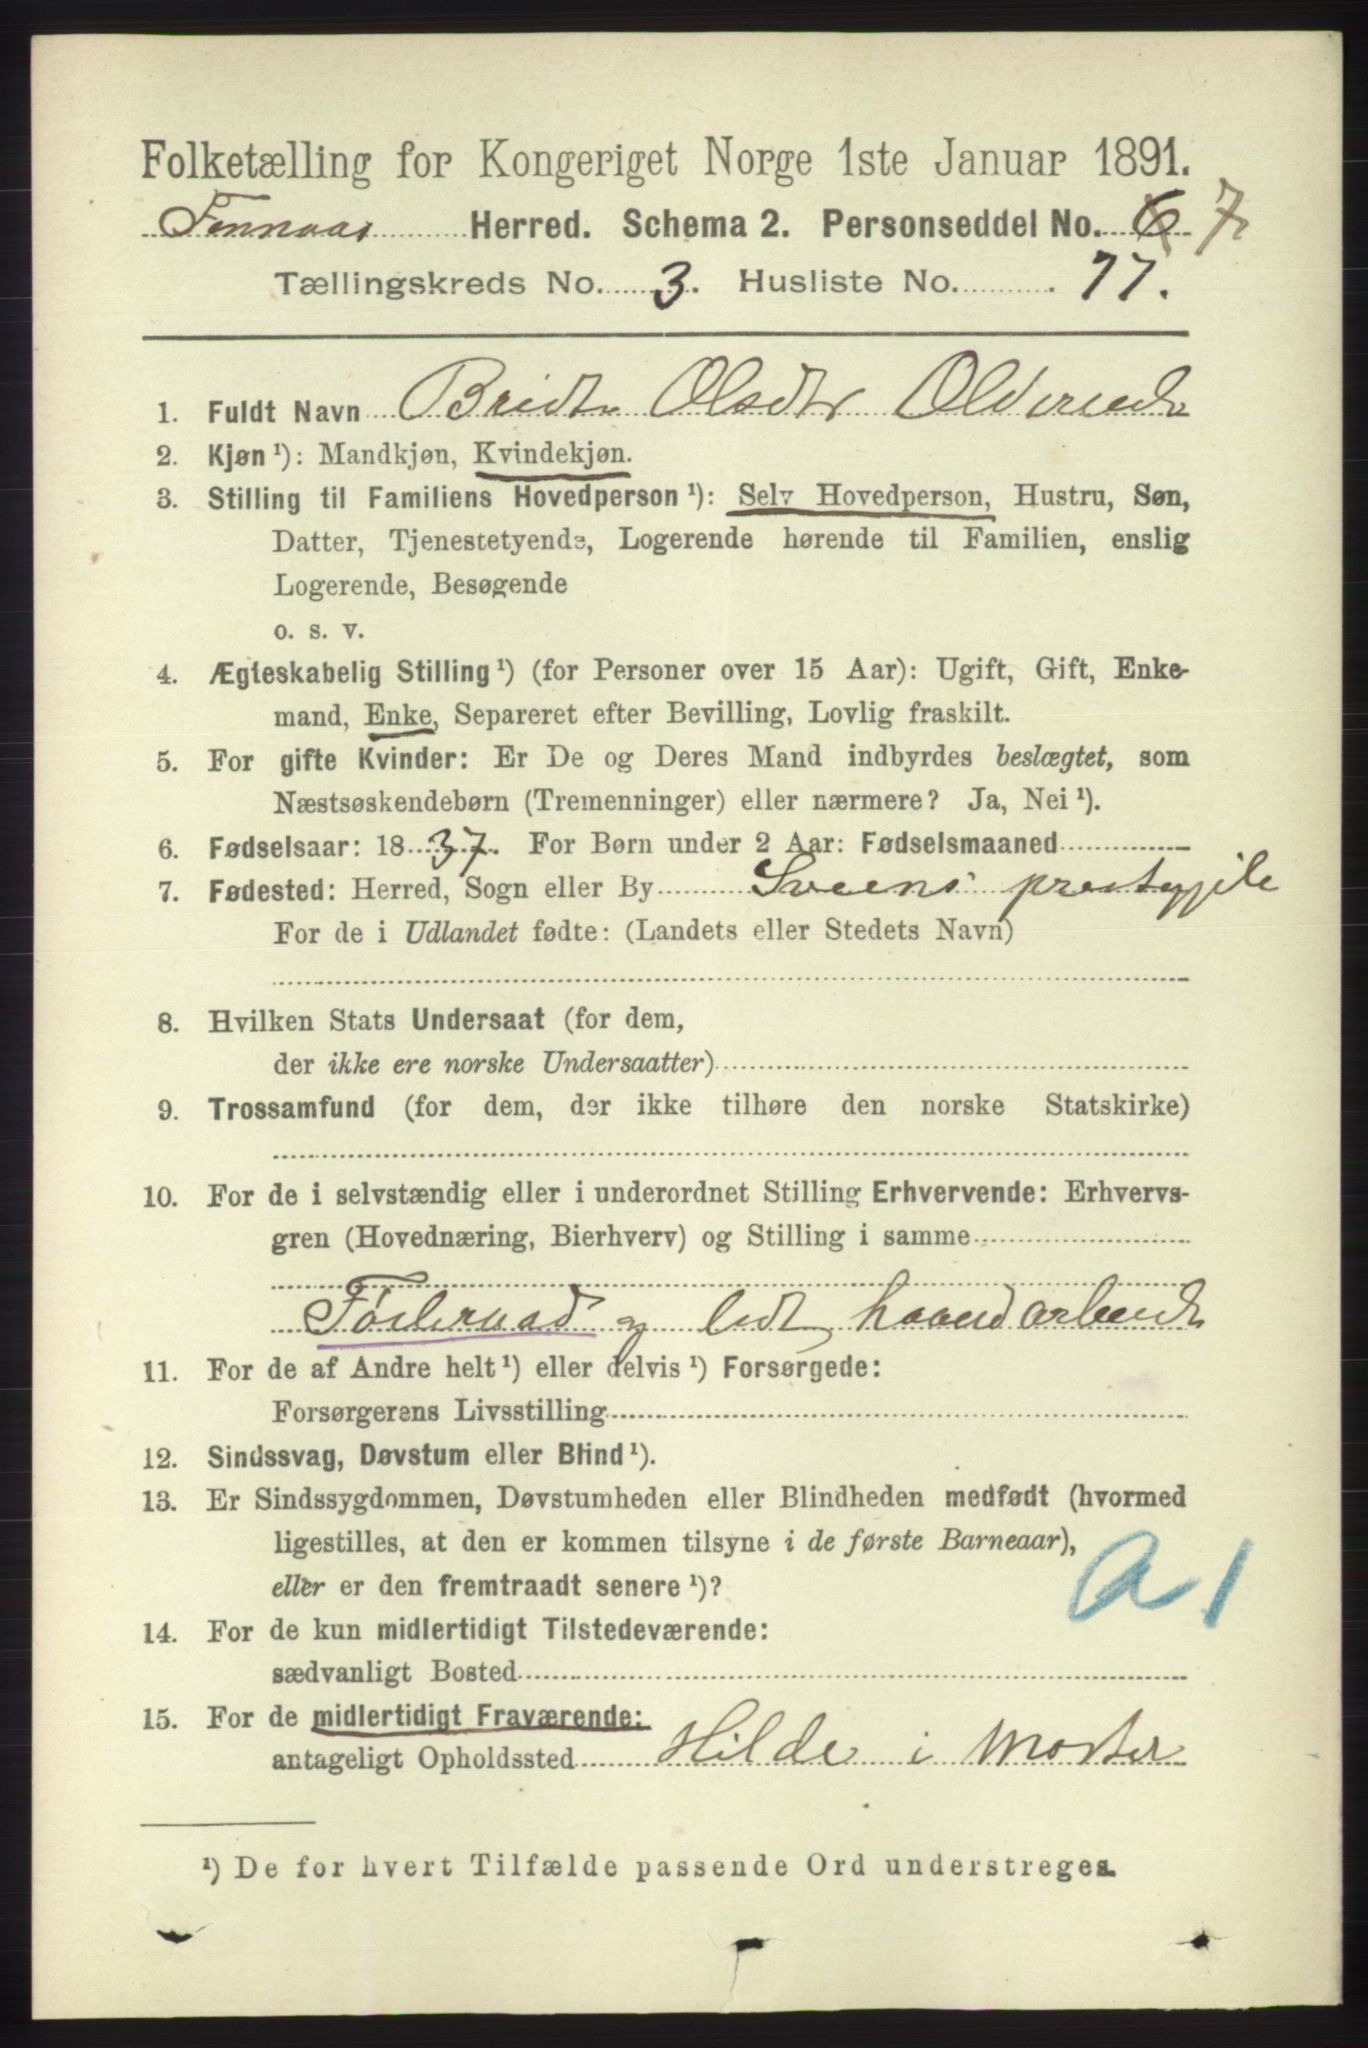 Folketælling for Kongeriget Norge 1ste Januar 1891.
Finnaas Herred. Schema 2. Personseddel No. 6 7
Tællingskreds No. 3. Husliste No. 77.
1. Fuldt Navn Olsdtr
2. Kjøn ¹): Mandkjøn, Kvindekjøn.
3. Stilling til Familiens Hovedperson ¹): Selv Hovedperson, Hustru, Søn,
Datter, Tjenestetyende, Logerende hørende til Familien, enslig
Logerende, Besøgende
o. s. v.
4. Ægteskabelig Stilling ¹) (for Personer over 15 Aar): Ugift, Gift, Enke-
mand, Enke, Separeret efter Bevilling, Lovlig fraskilt.
5. For gifte Kvinder: Er De og Deres Mand indbyrdes beslægtet, som
Næstsøskendebørn (Tremenninger) eller nærmere? Ja, Nei ¹).
6. Fødselsaar: 1837. For Børn under 2 Aar: Fødselsmaaned
7. Fødested: Herred, Sogn eller By Sveens
For de i Udlandet fødte: (Landets eller Stedets Navn)
8. Hvilken Stats Undersaat (for dem,
der ikke ere norske Undersaatter)
9. Trossamfund (for dem, der ikke tilhøre den norske Statskirke)
10. For de i selvstændig eller i underordnet Stilling Erhvervende: Erhvervs-
gren (Hovednæring, Bierhverv) og Stilling i samme
og lidt
11. For de af Andre helt ¹) eller delvis ¹) Forsørgede:
Forsørgerens Livsstilling
12. Sindssvag, Døvstum eller Blind ¹).
13. Er Sindssygdommen, Døvstumheden eller Blindheden medfødt (hvormed
ligestilles, at den er kommen tilsyne i de første Barneaar),
eller er den fremtraadt senere ¹)?
a 1
14. For de kun midlertidigt Tilstedeværende:
sædvanligt Bosted
15. For de midlertidigt Fraværende:
antageligt Opholdssted Hilde i Moster
¹) De for hvert Tilfælde passende Ord understreges.